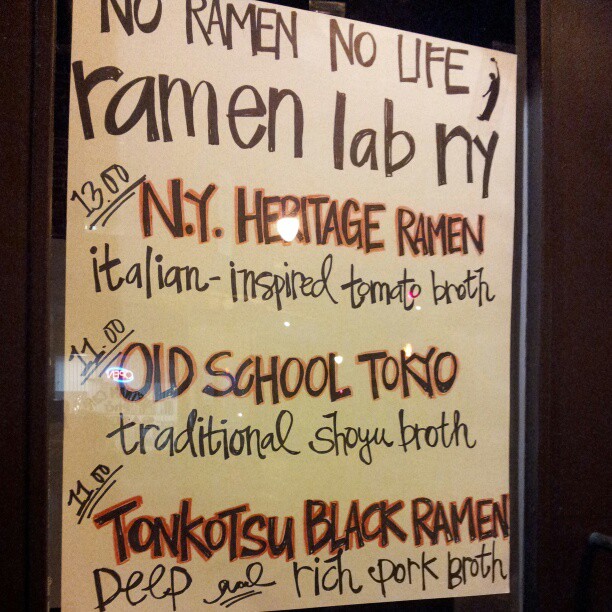 NO RAMEN NO LIFE
ramen lab ny
13.00
N.Y. HERITAGE RAMEN
italian-inspired tomato broth
11.00
OLD SCHOOL TOKYO
traditional shoyu broth
11.00
TONKOTSU BLACK RAMEN
Deep and rich pork broth
OPEN